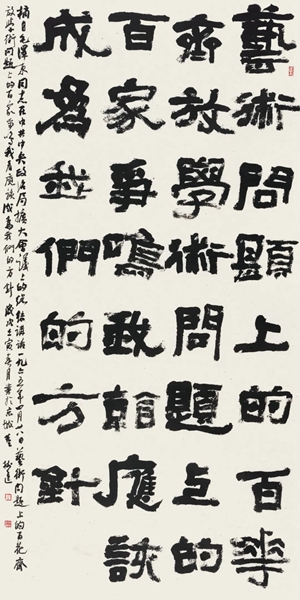 藝術問題上的百花
齊放學術問題上的
百家爭鳴我看應該
成為我們的方針
摘自毛澤東同志在中共中央政治局擴大會議上的總結講話一九五六年四月廿八日藝術問題上的百花齊
放學術問題上的百家爭鳴我看應該成為我們的方針歲次壬寅春月書於京城